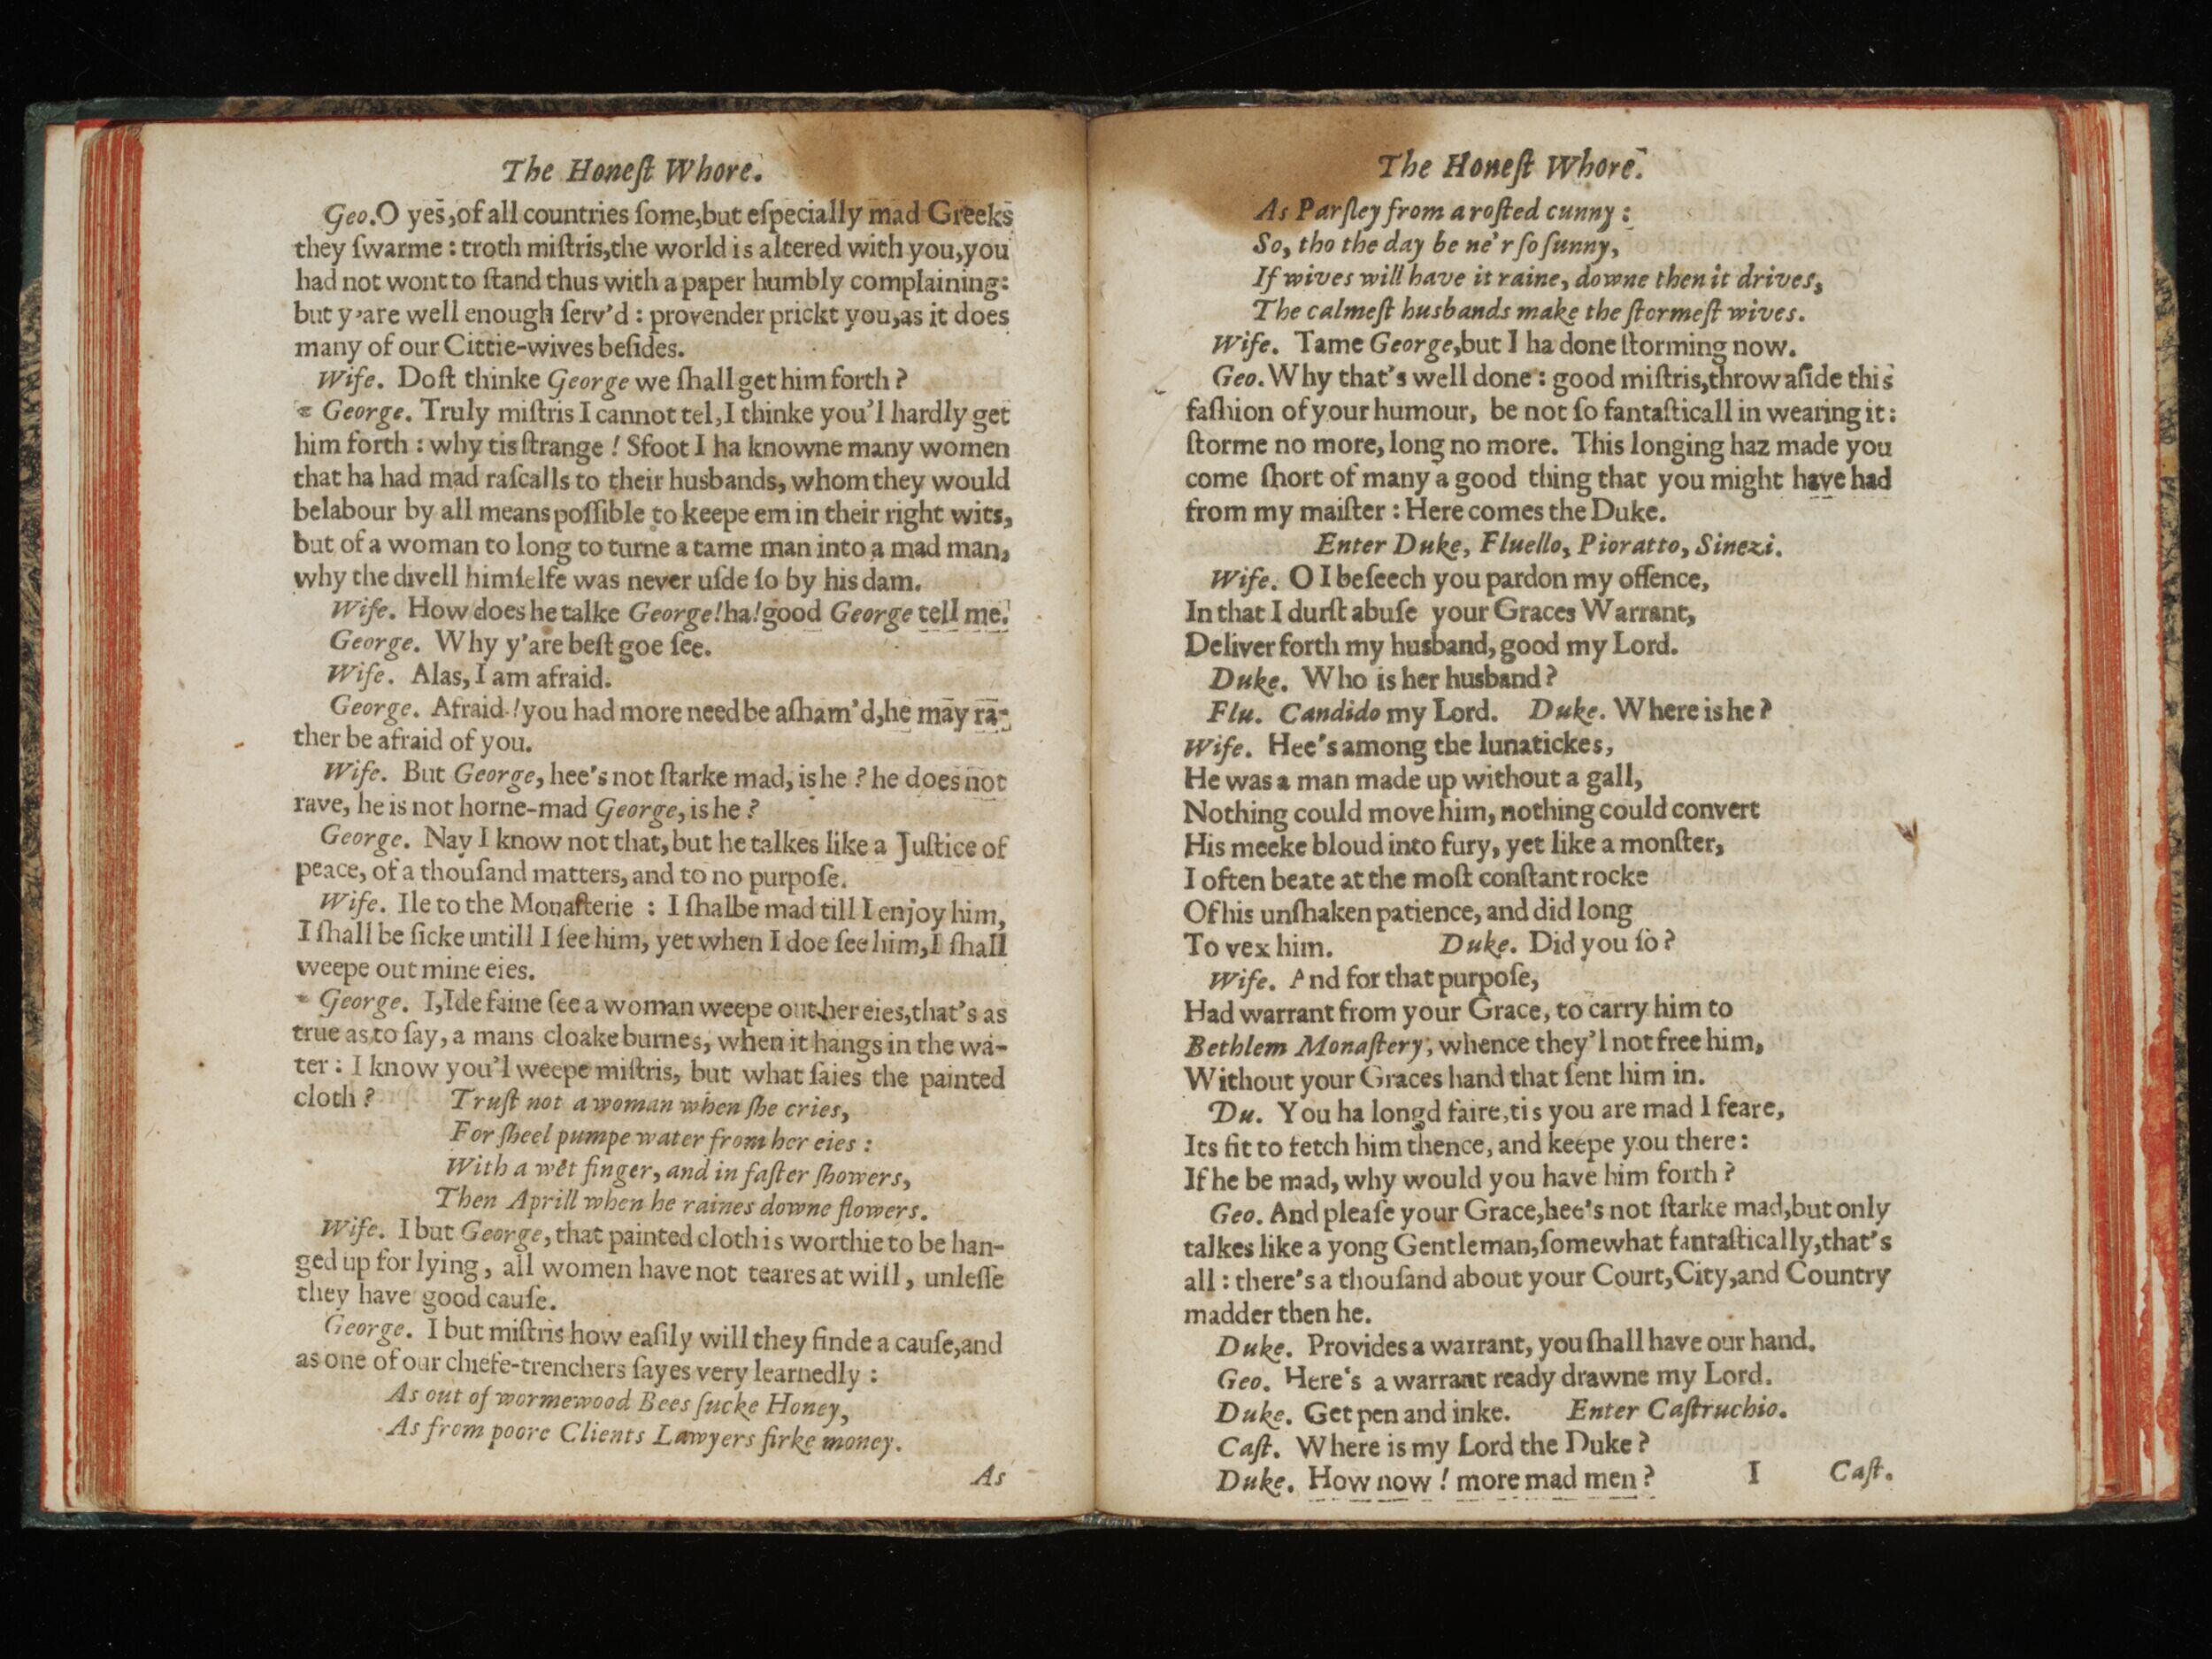 The Honeſt Whore.
Geo. O yes, of all countries ſome, but eſpecially mad Greeks
they ſwarme : troth miſtris, the world is altered with you, you
had not wont to ſtand thus with a paper humbly complaining:
but y'are well enough ſerv'd : provender prickt you, as it does
many of our Cittie-wives beſides.
Wife. Doſt thinke George we ſhall get him forth ?
George. Truly miſtris I cannot tel, I thinke you'l hardly get
him forth : why tis ſtrange ! Sfoot I ha knowne many women
that ha had mad raſcalls to their husbands, whom they would
belabour by all means poſſible to keepe em in their right wits,
but of a woman to long to turne a tame man into a mad man,
why the divell himſelfe was never uſde ſo by his dam.
Wife. How does he talke George! ha! good George tell me.
George. Why y'are beſt goe ſee.
Wife. Alas, I am afraid.
George. Afraid ! you had more need be aſham'd, he may ra-
ther be afraid of you.
Wife. But George, hee's not ſtarke mad, is he ? he does not
rave, he is not horne-mad George, is he ?
George. Nay I know not that, but he talkes like a Juſtice of
peace, of a thouſand matters, and to no purpoſe.
Wife. Ile to the Monaſterie : I ſhalbe mad till I enjoy him,
I ſhall be ſicke untill I ſee him, yet when I doe ſee him, I ſhall
weepe out mine eies.
George. I, Ide faine ſee a woman weepe out her eies, that's as
true as to ſay, a mans cloake burnes, when it hangs in the wa-
ter : I know you'l weepe miſtris, but what ſaies the painted
cloth ? Truſt not a woman when ſhe cries,
For ſheel pumpe water from her eies :
With a wet finger, and in faſter ſhowers,
Then Aprill when he raines downe flowers.
Wife. I but George, that painted cloth is worthie to be han-
ged up for lying, all women have not teares at will, unleſſe
they have good cauſe.
George. I but miſtris how eaſily will they finde a cauſe, and
as one of our chiefe-trenchers ſayes very learnedly :
As out of wormewood Bees ſucke Honey,
As from poore Clients Lawyers firke money.
As
The Honeſt Whore.
As Parſley from a roſted cunny :
So, tho the day be ne'r ſo ſunny,
If wives will have it raine, downe then it drives,
The calmeſt husbands make the ſtormeſt wives.
Wife. Tame George, but I ha done ſtorming now.
Geo. Why that's well done : good miſtris, throw aſide this
faſhion of your humour, be not ſo fantaſticall in wearing it :
ſtorme no more, long no more. This longing haz made you
come ſhort of many a good thing that you might have had
from my maiſter : Here comes the Duke.
Enter Duke, Fluello, Pioratto, Sinezi.
Wife. O I beſeech you pardon my offence,
In that I durſt abuſe your Graces Warrant,
Deliver forth my husband, good my Lord.
Duke. Who is her husband ?
Flu. Candido my Lord. Duke. Where is he ?
Wife. Hee's among the lunatickes,
He was a man made up without a gall,
Nothing could move him, nothing could convert
His meeke bloud into fury, yet like a monſter,
I often beate at the moſt conſtant rocke
Of his unſhaken patience, and did long
To vex him. Duke. Did you ſo ?
Wife. And for that purpoſe,
Had warrant from your Grace, to carry him to
Bethlem Monaſtery, whence they'l not free him,
Without your Graces hand that ſent him in.
Du. You ha longd faire, tis you are mad I feare,
Its fit to fetch him thence, and keepe you there :
If he be mad, why would you have him forth ?
Geo. And pleaſe your Grace, hee's not ſtarke mad, but only
talkes like a yong Gentleman, ſomewhat fantaſtically, that's
all : there's a thouſand about your Court, City, and Country
madder then he.
Duke. Provides a warrant, you ſhall have our hand.
Geo. Here's a warrant ready drawne my Lord.
Duke. Get pen and inke. Enter Caſtruchio.
Caſt. Where is my Lord the Duke ?
Duke. How now ! more mad men ?
I Caſt.